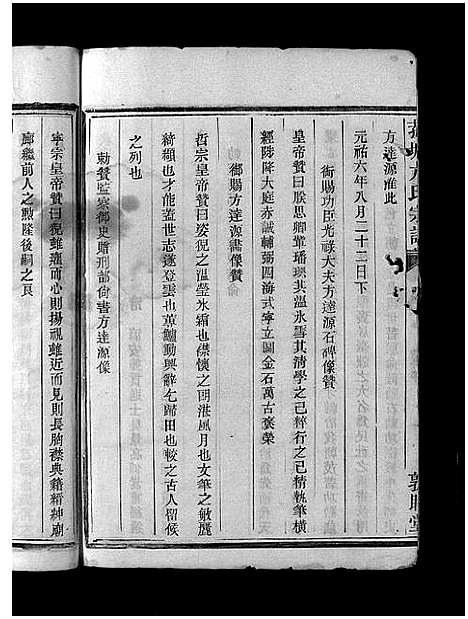 方達源准此
元祐六年八月二十三日下
御賜功臣光祿大夫方達源石碑像贊
皇帝贊曰朕思卿輩璠璵其溫氷雪其清學之己粹行之己精執筆橫
經陛陛大庭赤誠輔弼四海式寧立圖金石萬古褒榮
御賜方達源畵像贊
哲宗皇帝贊曰姿猊之溫瑩氷霜也襟懷之閎港風月也文筆之敏麗
綺纈也才能蓋世志遂登雲也薰鱸動興辭乞歸田也較之古人留候
之列也
勅贊監察御史贈刑部尙書方達源像
寧宗皇帝贊曰猊雖癯而心則揚視雖近而見則長胸襟典籍精神廟
廊繼前人之勲隆後嗣之良
方氏宗譜
敦睦堂